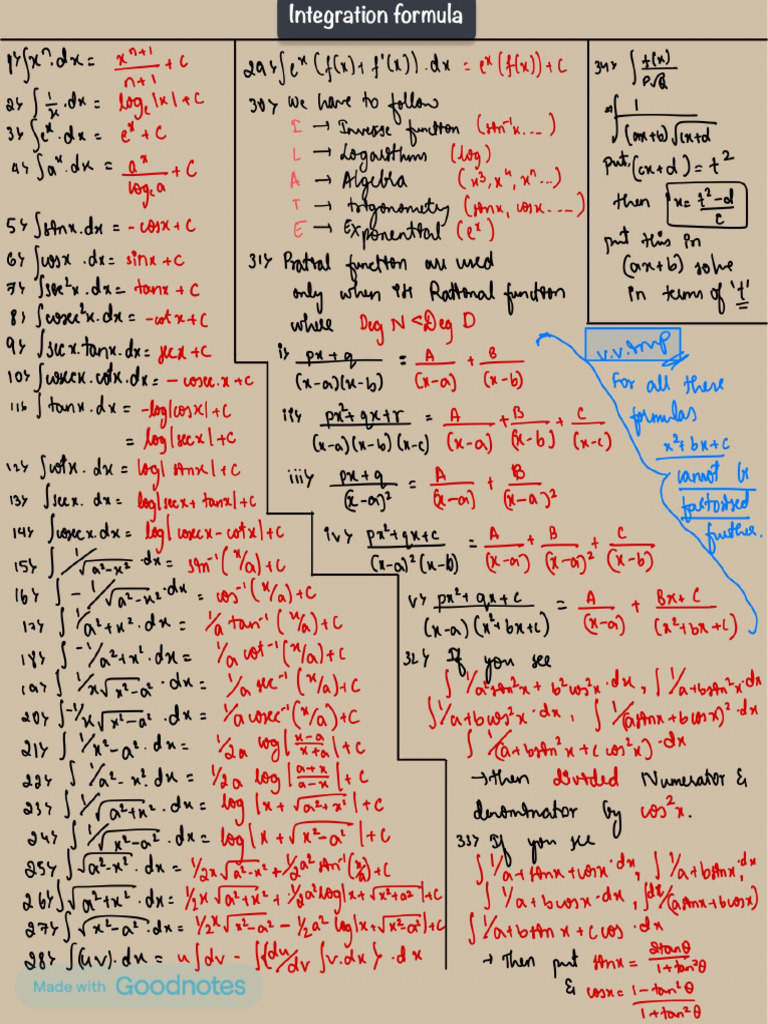 Integration formula
1> ∫xⁿ.dx = xⁿ⁺¹/n+1 + C
2> ∫1/x.dx = logₑ|x| + C
3> ∫eˣ.dx = eˣ + C
4> ∫aˣ.dx = aˣ/logₑa + C
5> ∫sinx.dx = -cosx + C
6> ∫cosx.dx = sinx + C
7> ∫sec²x.dx = tanx + C
8> ∫cosec²x.dx = -cotx + C
9> ∫secx.tanx.dx = secx + C
10> ∫cosecx.cotx.dx = -cosec.x + C
11> ∫tanx.dx = -log|cosx| + C
= log|secx| + C
12> ∫cotx.dx = log|sinx| + C
13> ∫secx.dx = log|secx + tanx| + C
14> ∫cosecx.dx = log|cosecx - cotx| + C
15> ∫1/√a²-x².dx = sin⁻¹(x/a) + C
16> ∫-1/√a²-x².dx = cos⁻¹(x/a) + C
17> ∫1/a²+x².dx = 1/a tan⁻¹(x/a) + C
18> ∫-1/a²+x².dx = 1/a cot⁻¹(x/a) + C
19> ∫1/x√x²-a².dx = 1/a sec⁻¹(x/a) + C
20> ∫-1/x√x²-a².dx = 1/a cosec⁻¹(x/a) + C
21> ∫1/x²-a².dx = 1/2a log|x-a/x+a| + C
22> ∫1/a²-x².dx = 1/2a log|a+x/a-x| + C
23> ∫1/√a²+x².dx = log|x + √a²+x²| + C
24> ∫1/√x²-a².dx = log|x + √x²-a²| + C
25> ∫√a²-x².dx = 1/2x√a²-x² + 1/2a² sin⁻¹(x/a) + C
26> ∫√a²+x².dx = 1/2x√a²+x² + 1/2a²log|x + √x²+a²| + C
27> ∫√x²-a².dx = 1/2x√x²-a² - 1/2a² log|x + √x²-a²| + C
28> ∫(uv).dx = u∫dv - ∫{du/dv ∫v.dx}.dx
29> ∫eˣ(f(x) + f'(x)).dx = eˣ(f(x)) + C
30> We have to follow
I → Inverse function (sin⁻¹x...)
L → Logarithms (log)
A → Algebra (x³, x⁴, xⁿ...)
T → trigonometry (sinx, cosx....)
E → Exponential (eˣ)
31> Partial function are used
only when it Rational function
where Deg N < Deg D
i> px+q/(x-a)(x-b) = A/(x-a) + B/(x-b)
ii> px²+qx+r/(x-a)(x-b)(x-c) = A/(x-a) + B/(x-b) + C/(x-c)
iii> px+q/(x-a)² = A/(x-a) + B/(x-a)²
iv> px²+qx+c/(x-a)²(x-b) = A/(x-a) + B/(x-a)² + C/(x-b)
v> px²+qx+c/(x-a)(x²+bx+c) = A/(x-a) + Bx+C/(x²+bx+c)
32> If you see
∫1/a²sin²x + b²cos²x.dx, ∫1/a+bsin²x.dx
∫1/a+bcos²x.dx, ∫1/(asinx+bcosx)².dx
∫1/(a+bsin²x+ccos²x).dx
→ then divided Numerator &
denominator by cos²x.
33> If you see
∫1/a+sinx+cosx.dx, ∫1/a+bsinx.dx
∫1/a+bcosx.dx, ∫dx/(asinx+bcosx)
∫1/a+bsinx+ccos.dx
→ Then put sinx = 2tanθ/1+tan²θ
& cosx = 1-tan²θ/1+tan²θ
34> ∫f(x)/P√Q
⇒ ∫1/(ax+b)√cx+d
put, (cx+d) = t²
then x = t²-d/c
put this in
(ax+b) solve
in terms of 't'
v.v.imp
For all these
formulas
x²+bx+c
cannot be
factorised
further.
Made with Goodnotes